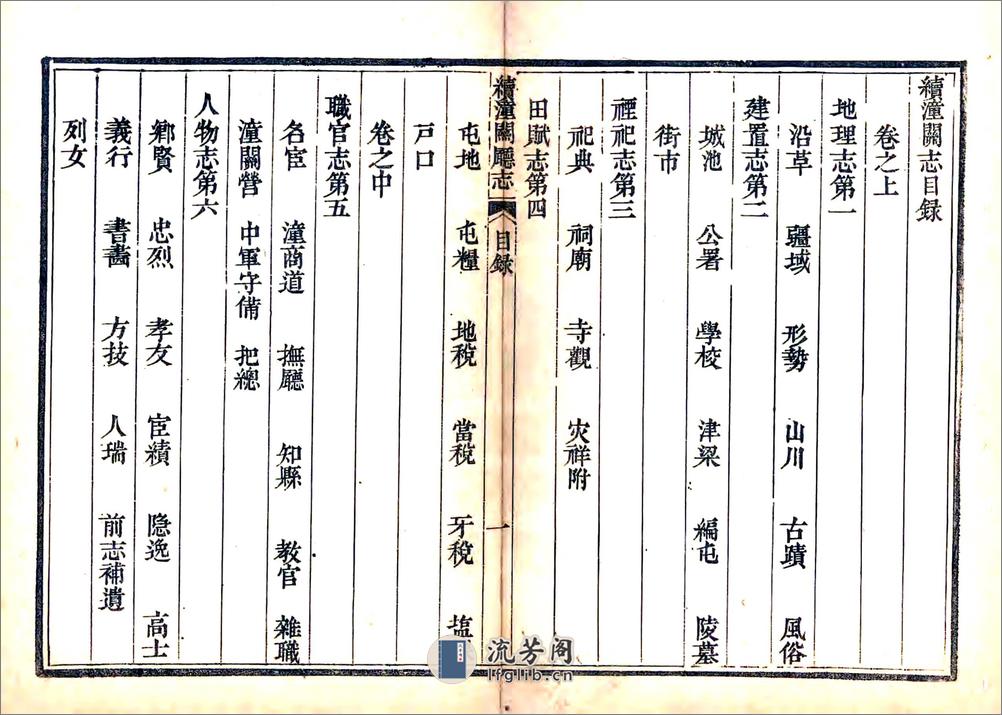 續潼關志目録
卷之上
地理志第一
沿革 疆域 形勢 山川 古蹟 風俗
建置志第二
城池 公署 學校 津梁 編屯 陵墓
街市
禋祀志第三
祀典 祠廟 寺觀 灾祥附
田賦志第四
續潼關廳志 目録 一
屯地 屯糧 地稅 當稅 牙稅 塩
戸口
卷之中
職官志第五
名宦 潼商道 撫廳 知縣 教官 雜職
潼關營 中軍守備 把總
人物志第六
鄉賢 忠烈 孝友 宦績 隐逸 高士
義行 書畵 方技 人瑞 前志補遺
列女
流芳阁
lfglib.cn